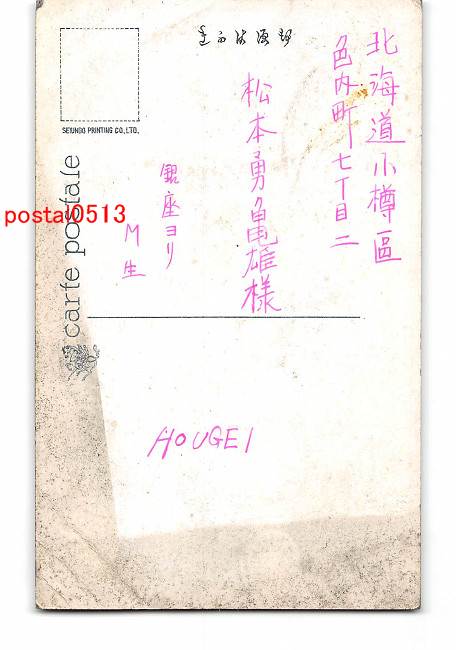 SEIUNDO PRINTING CO., LTD.
北海道小樽區
色内町七丁目二
松本勇亀雄様
銀座ヨリ
M生
carte postale
postal0513
HOUGEI